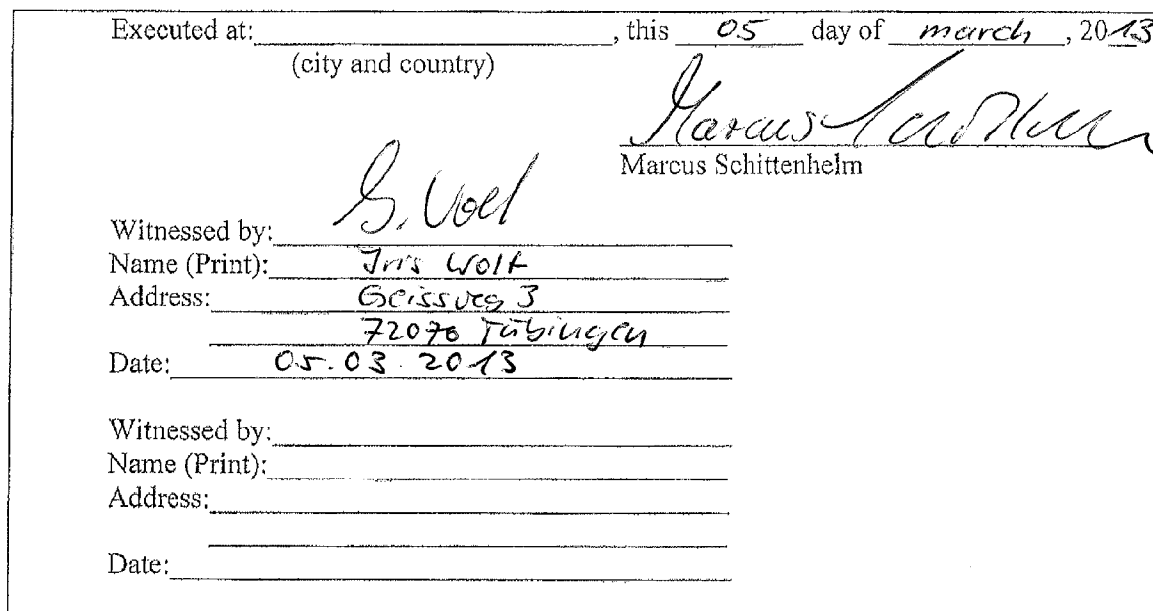 Executed at: , this 05 day of march, 2013
(city and country)
Marcus
Marcus Schittenhelm
Witnessed by:
Name (Print): Iris Wolf
Address: 3
72070 Tübingen
Date: 05.03.2013
Witnessed by:
Name (Print):
Address:
Date: